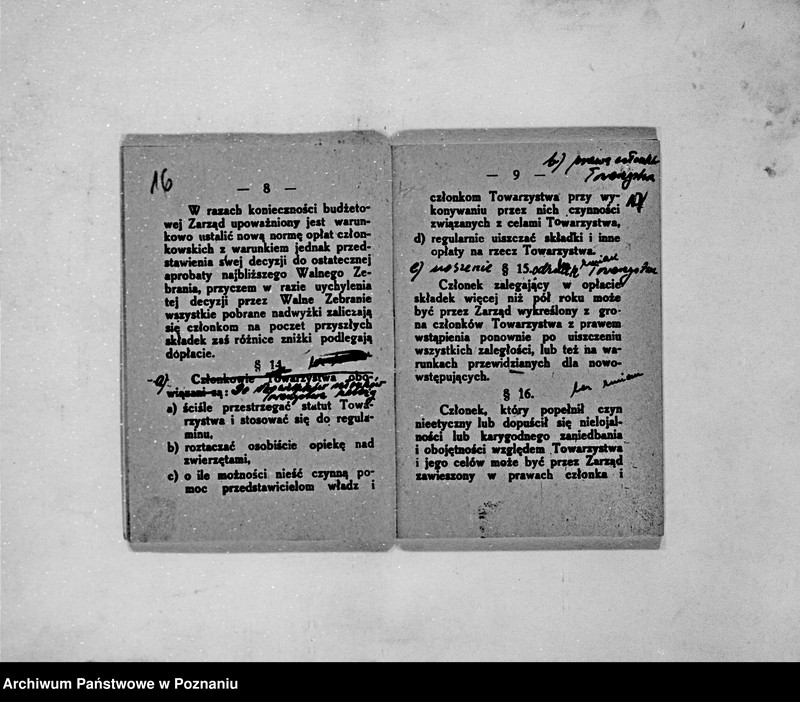 16
— 8 —
W razach konieczności budżeto-
wej Zarząd upoważniony jest warun-
kowo ustalić nową normę opłat człon-
kowskich z warunkiem jednak przed-
stawienia swej decyzji do ostatecznej
aprobaty najbliższego Walnego Ze-
brania, przyczem w razie uchylenia
tej decyzji przez Walne Zebranie
wszystkie pobrane nadwyżki zaliczają
się członkom na poczet przyszłych
składek zaś różnice zniżki podlegają
dopłacie.
§ 14.
a) Członkowie Towarzystwa obo-
wiązani są:
a) ściśle przestrzegać statut Towa-
rzystwa i stosować się do regula-
minu,
b) roztaczać osobiście opiekę nad
zwierzętami,
c) o ile możności nieść czynną po-
moc przedstawicielom władz i
b) prawa członka
Towarzystwa
— 9 —
członkom Towarzystwa przy wy-
konywaniu przez nich czynności
związanych z celami Towarzystwa,
d) regularnie uiszczać składki i inne
opłaty na rzecz Towarzystwa.
bez zmian
e) noszenie § 15. odznak Towarzystwa
Członek zalegający w opłacie
składek więcej niż pół roku może
być przez Zarząd wykreślony z gro-
na członków Towarzystwa z prawem
wstąpienia ponownie po uiszczeniu
wszystkich zaległości, lub też na wa-
runkach przewidzianych dla nowo-
wstępujących.
§ 16. bez zmian
Członek, który popełnił czyn
nieetyczny lub dopuścił się nielojal-
ności lub karygodnego zaniedbania
i obojętności względem Towarzystwa
i jego celów może być przez Zarząd
zawieszony w prawach członka i
Archiwum Państwowe w Poznaniu